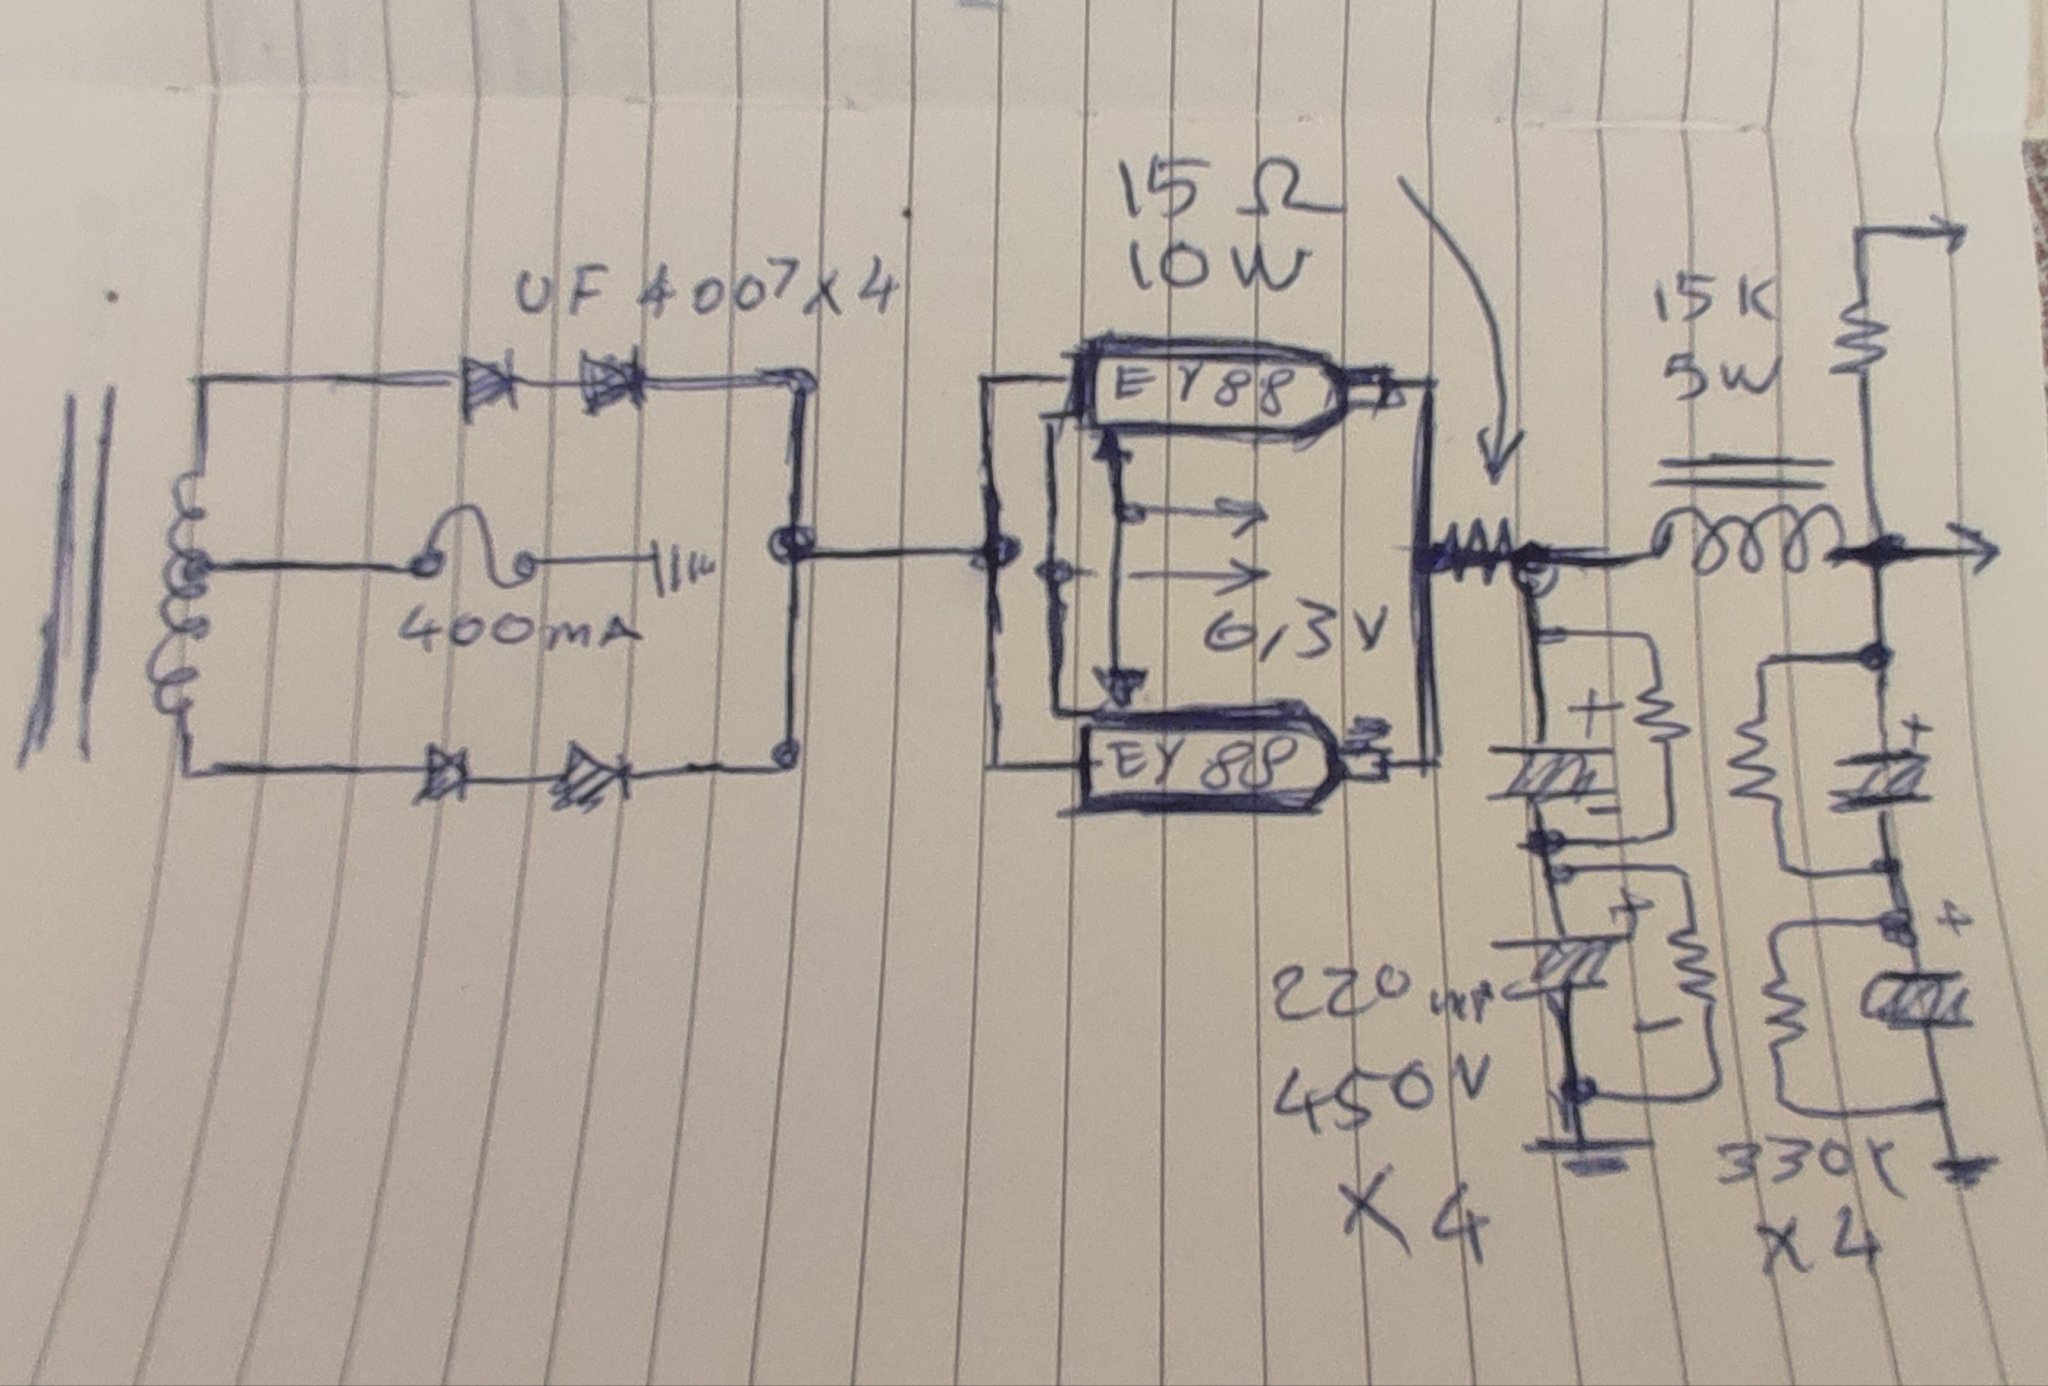 UF 4007 X 4
15 Ω
10 W
15K
5W
EY88
400mA
6,3V
EY88
+
+
-
+
+
220
450V
X 4
-
330K
X 4